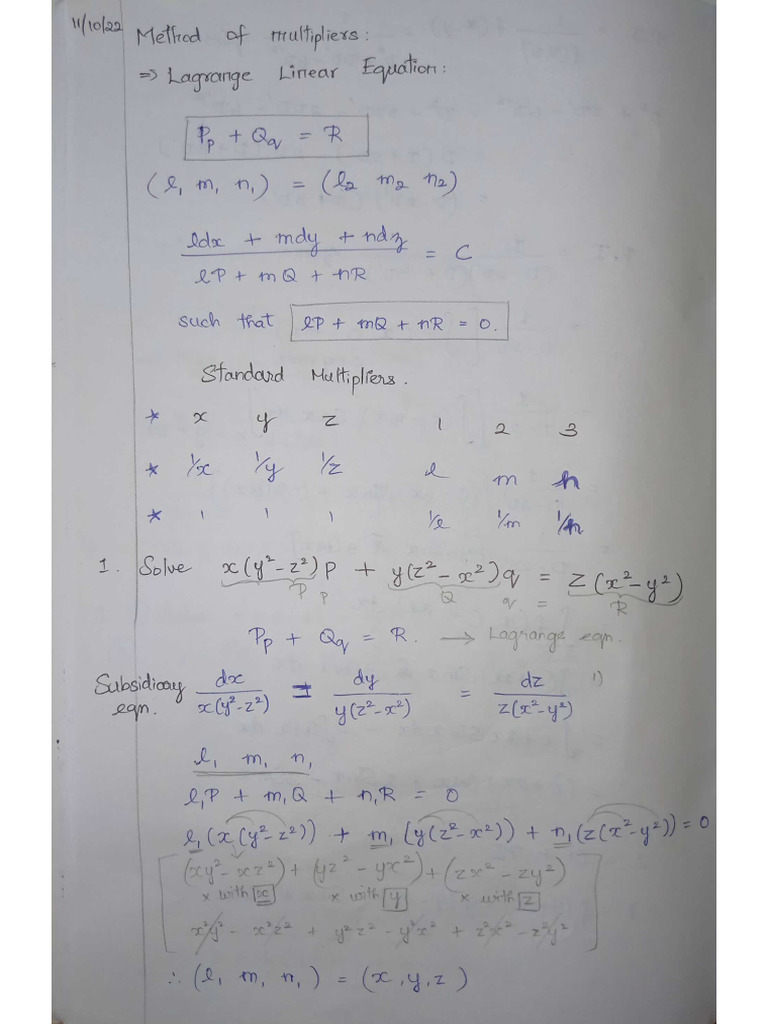 11/10/22 Method of multipliers:
=> Lagrange Linear Equation:
Pp + Qq = R
(l₁ m₁ n₁) = (l₂ m₂ n₂)
ldx + mdy + ndz / lP + mQ + nR = C
such that lP + mQ + nR = 0.
Standard Multipliers.
* x y z 1 2 3
* 1/x 1/y 1/z l m n
* 1 1 1 1/l 1/m 1/n
1. Solve x(y²-z²)p + y(z²-x²)q = z(x²-y²)
P p Q q = R
Pp + Qq = R. → Lagrange eqn.
Subsidioay eqn. dx / x(y²-z²) = dy / y(z²-x²) = dz / z(x²-y²) 1)
l₁ m₁ n₁
l₁P + m₁Q + n₁R = 0
l₁(x(y²-z²)) + m₁(y(z²-x²)) + n₁(z(x²-y²)) = 0
(xy²-xz²) + (yz²-yx²) + (zx²-zy²)
× with x × with y × with z
x²y² - x²z² + y²z² - y²x² + z²x² - z²y²
∴ (l₁ m₁ n₁) = (x, y, z)